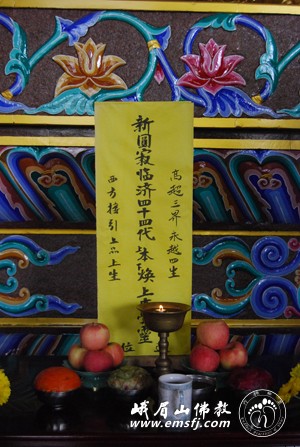 高超三界永越四生
新圓寂临济四十四代本焕上
西方接引上品上生
位
峨眉山佛教
www.emsfj.com